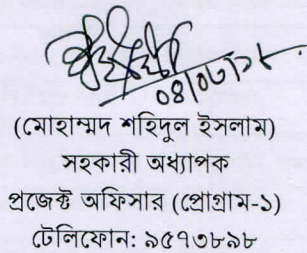 (মোহাম্মদ শহিদুল ইসলাম)
সহকারী অধ্যাপক
প্রজেক্ট অফিসার (প্রোগ্রাম-১)
টেলিফোন: ৯৫৭৩৮৯৮